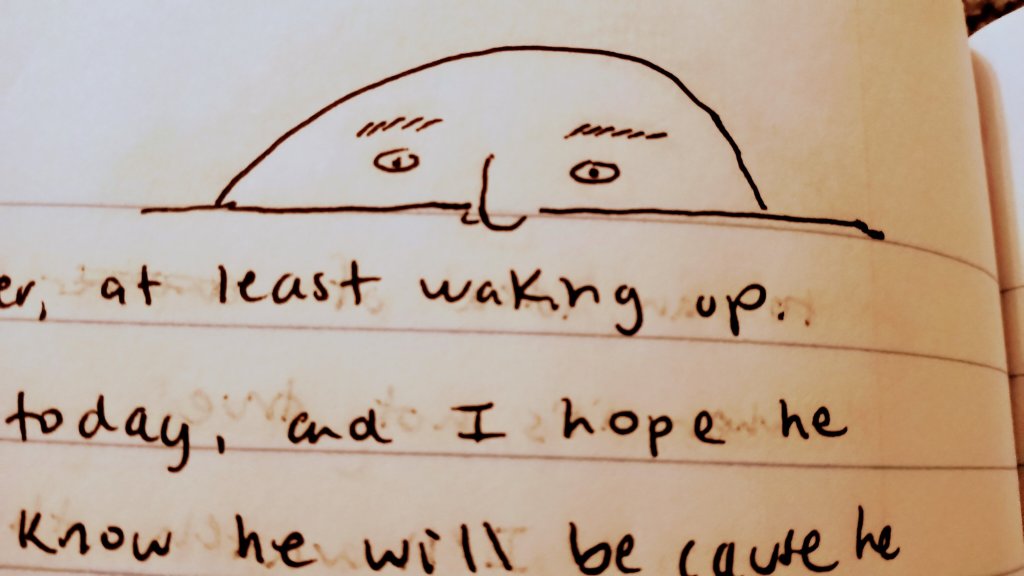 er, at least waking up.
today, and I hope he
know he will be cause he